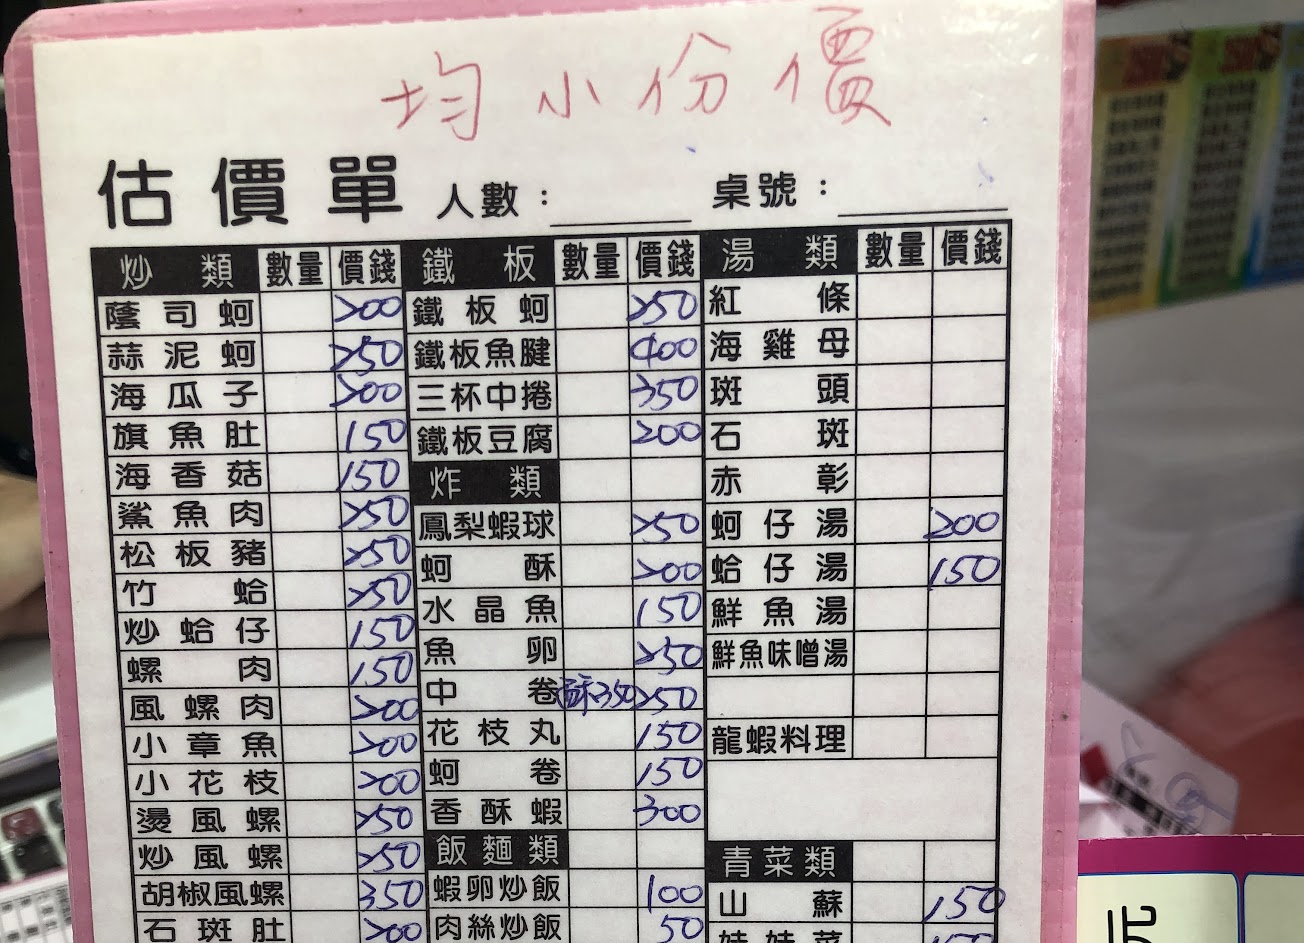 均小份價
估價單 人數： 桌號：
炒類 數量 價錢 鐵板 數量 價錢 湯類 數量 價錢
蔭司蚵 200 鐵板蚵 250 紅條
蒜泥蚵 250 鐵板魚腱 400 海雞母
海瓜子 200 三杯中捲 350 斑頭
旗魚肚 150 鐵板豆腐 200 石斑
海香菇 150 炸類 赤彰
鯊魚肉 250 鳳梨蝦球 250 蚵仔湯 200
松板豬 250 蚵酥 200 蛤仔湯 150
竹蛤 250 水晶魚 150 鮮魚湯
炒蛤仔 150 魚卵 250 鮮魚味噌湯
螺肉 150 中卷 酥350 250
風螺肉 200 花枝丸 150 龍蝦料理
小章魚 200 蚵卷 150
小花枝 200 香酥蝦 300
燙風螺 250 飯麵類 青菜類
炒風螺 250 蝦卵炒飯 100 山蘇 150
胡椒風螺 350 肉絲炒飯 50 娃娃菜 150
石斑肚 200
元